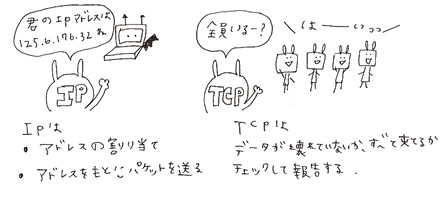 君のIPアドレスは
125.6.176.32ね
IP
全員いるー?
はーいっっ
TCP
IPは
・アドレスの割り当て
・アドレスをもとにパケットを送る
TCPは
データが壊れていないか、すべて来てるか
チェックして報告する.